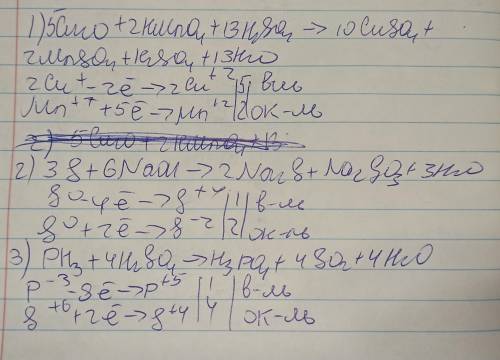 1) 5Cu2O + 2KMnO4 + 13H2SO4 → 10CuSO4 +
2MnSO4 + K2SO4 + 13H2O
2Cu+ - 2ē → 2Cu+2 | 5 | в-ль
Mn+7 + 5ē → Mn+2 | 2 | ок-ль
2) 3S + 6NaOH → 2Na2S + Na2SO3 + 3H2O
S0 - 4ē → S+4 | 1 | в-ль
S0 + 2ē → S-2 | 2 | ок-ль
3) PH3 + 4H2SO4 → H3PO4 + 4SO2 + 4H2O
P-3 - 8ē → P+5 | 1 | в-ль
S+6 + 2ē → S+4 | 4 | ок-ль